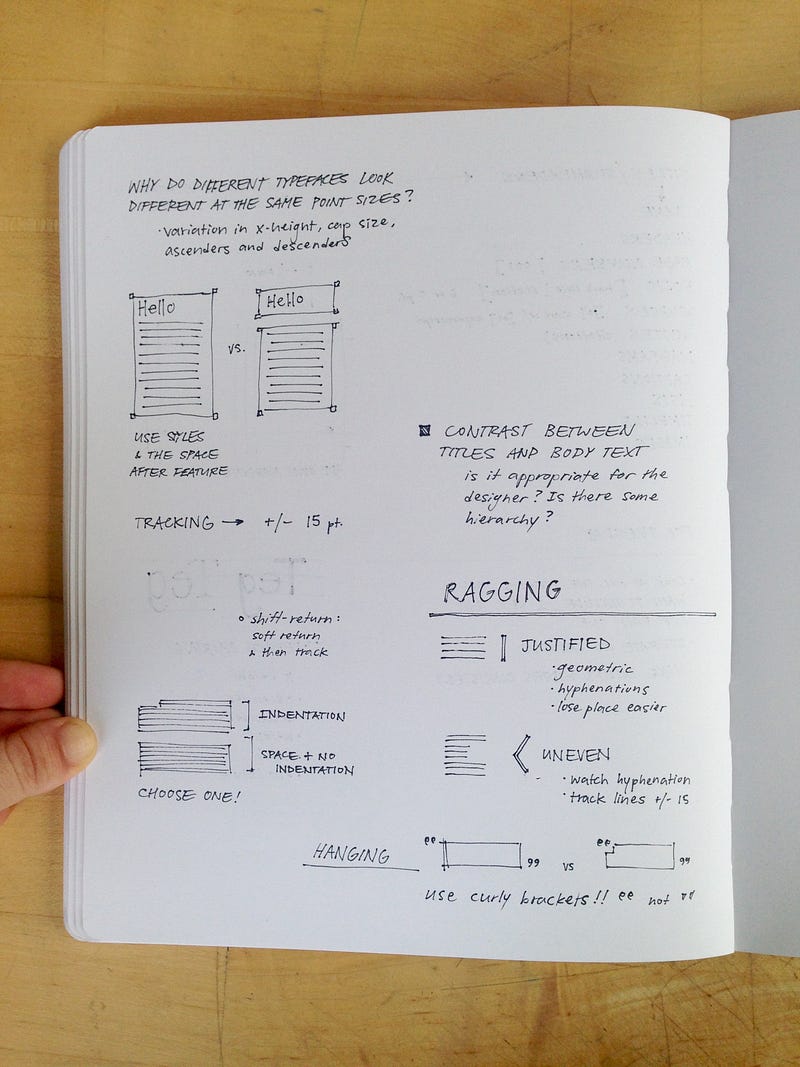 WHY DO DIFFERENT TYPEFACES LOOK
DIFFERENT AT THE SAME POINT SIZES?
· variation in x-height, cap size,
ascenders and descenders
Hello
vs.
Hello
USE STYLES
& THE SPACE
AFTER FEATURE
TRACKING → +/- 15 pt.
shift-return:
soft return
& then track
INDENTATION
SPACE + NO
INDENTATION
CHOOSE ONE!
CONTRAST BETWEEN
TITLES AND BODY TEXT
is it appropriate for the
designer? Is there some
hierarchy?
RAGGING
JUSTIFIED
· geometric
· hyphenations
· lose place easier
UNEVEN
· watch hyphenation
· track lines +/- 15
HANGING
vs
use curly brackets!! “ not "